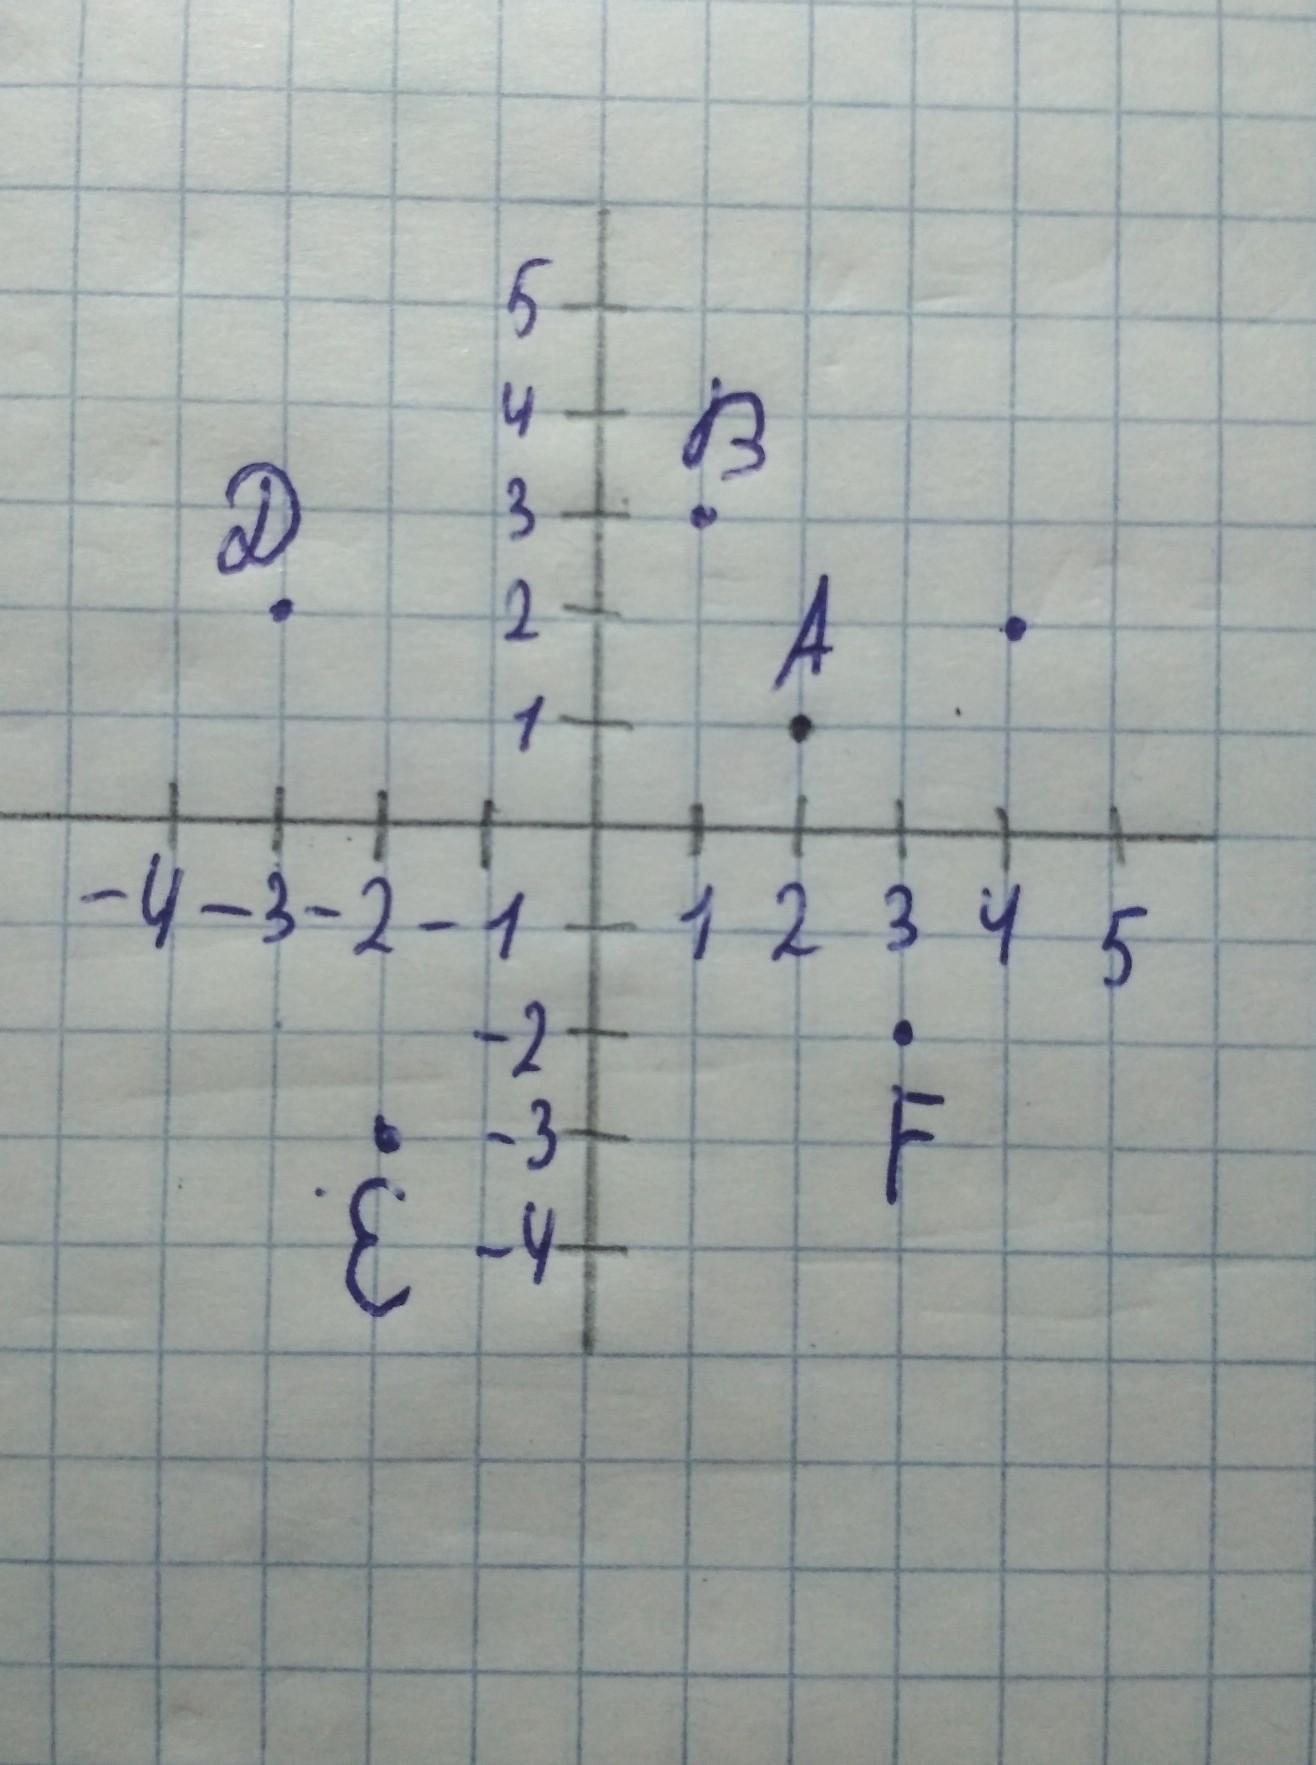 5
4 B
D 3
2 A
1
-4 -3 -2 -1 1 2 3 4 5
-2
-3 F
E -4